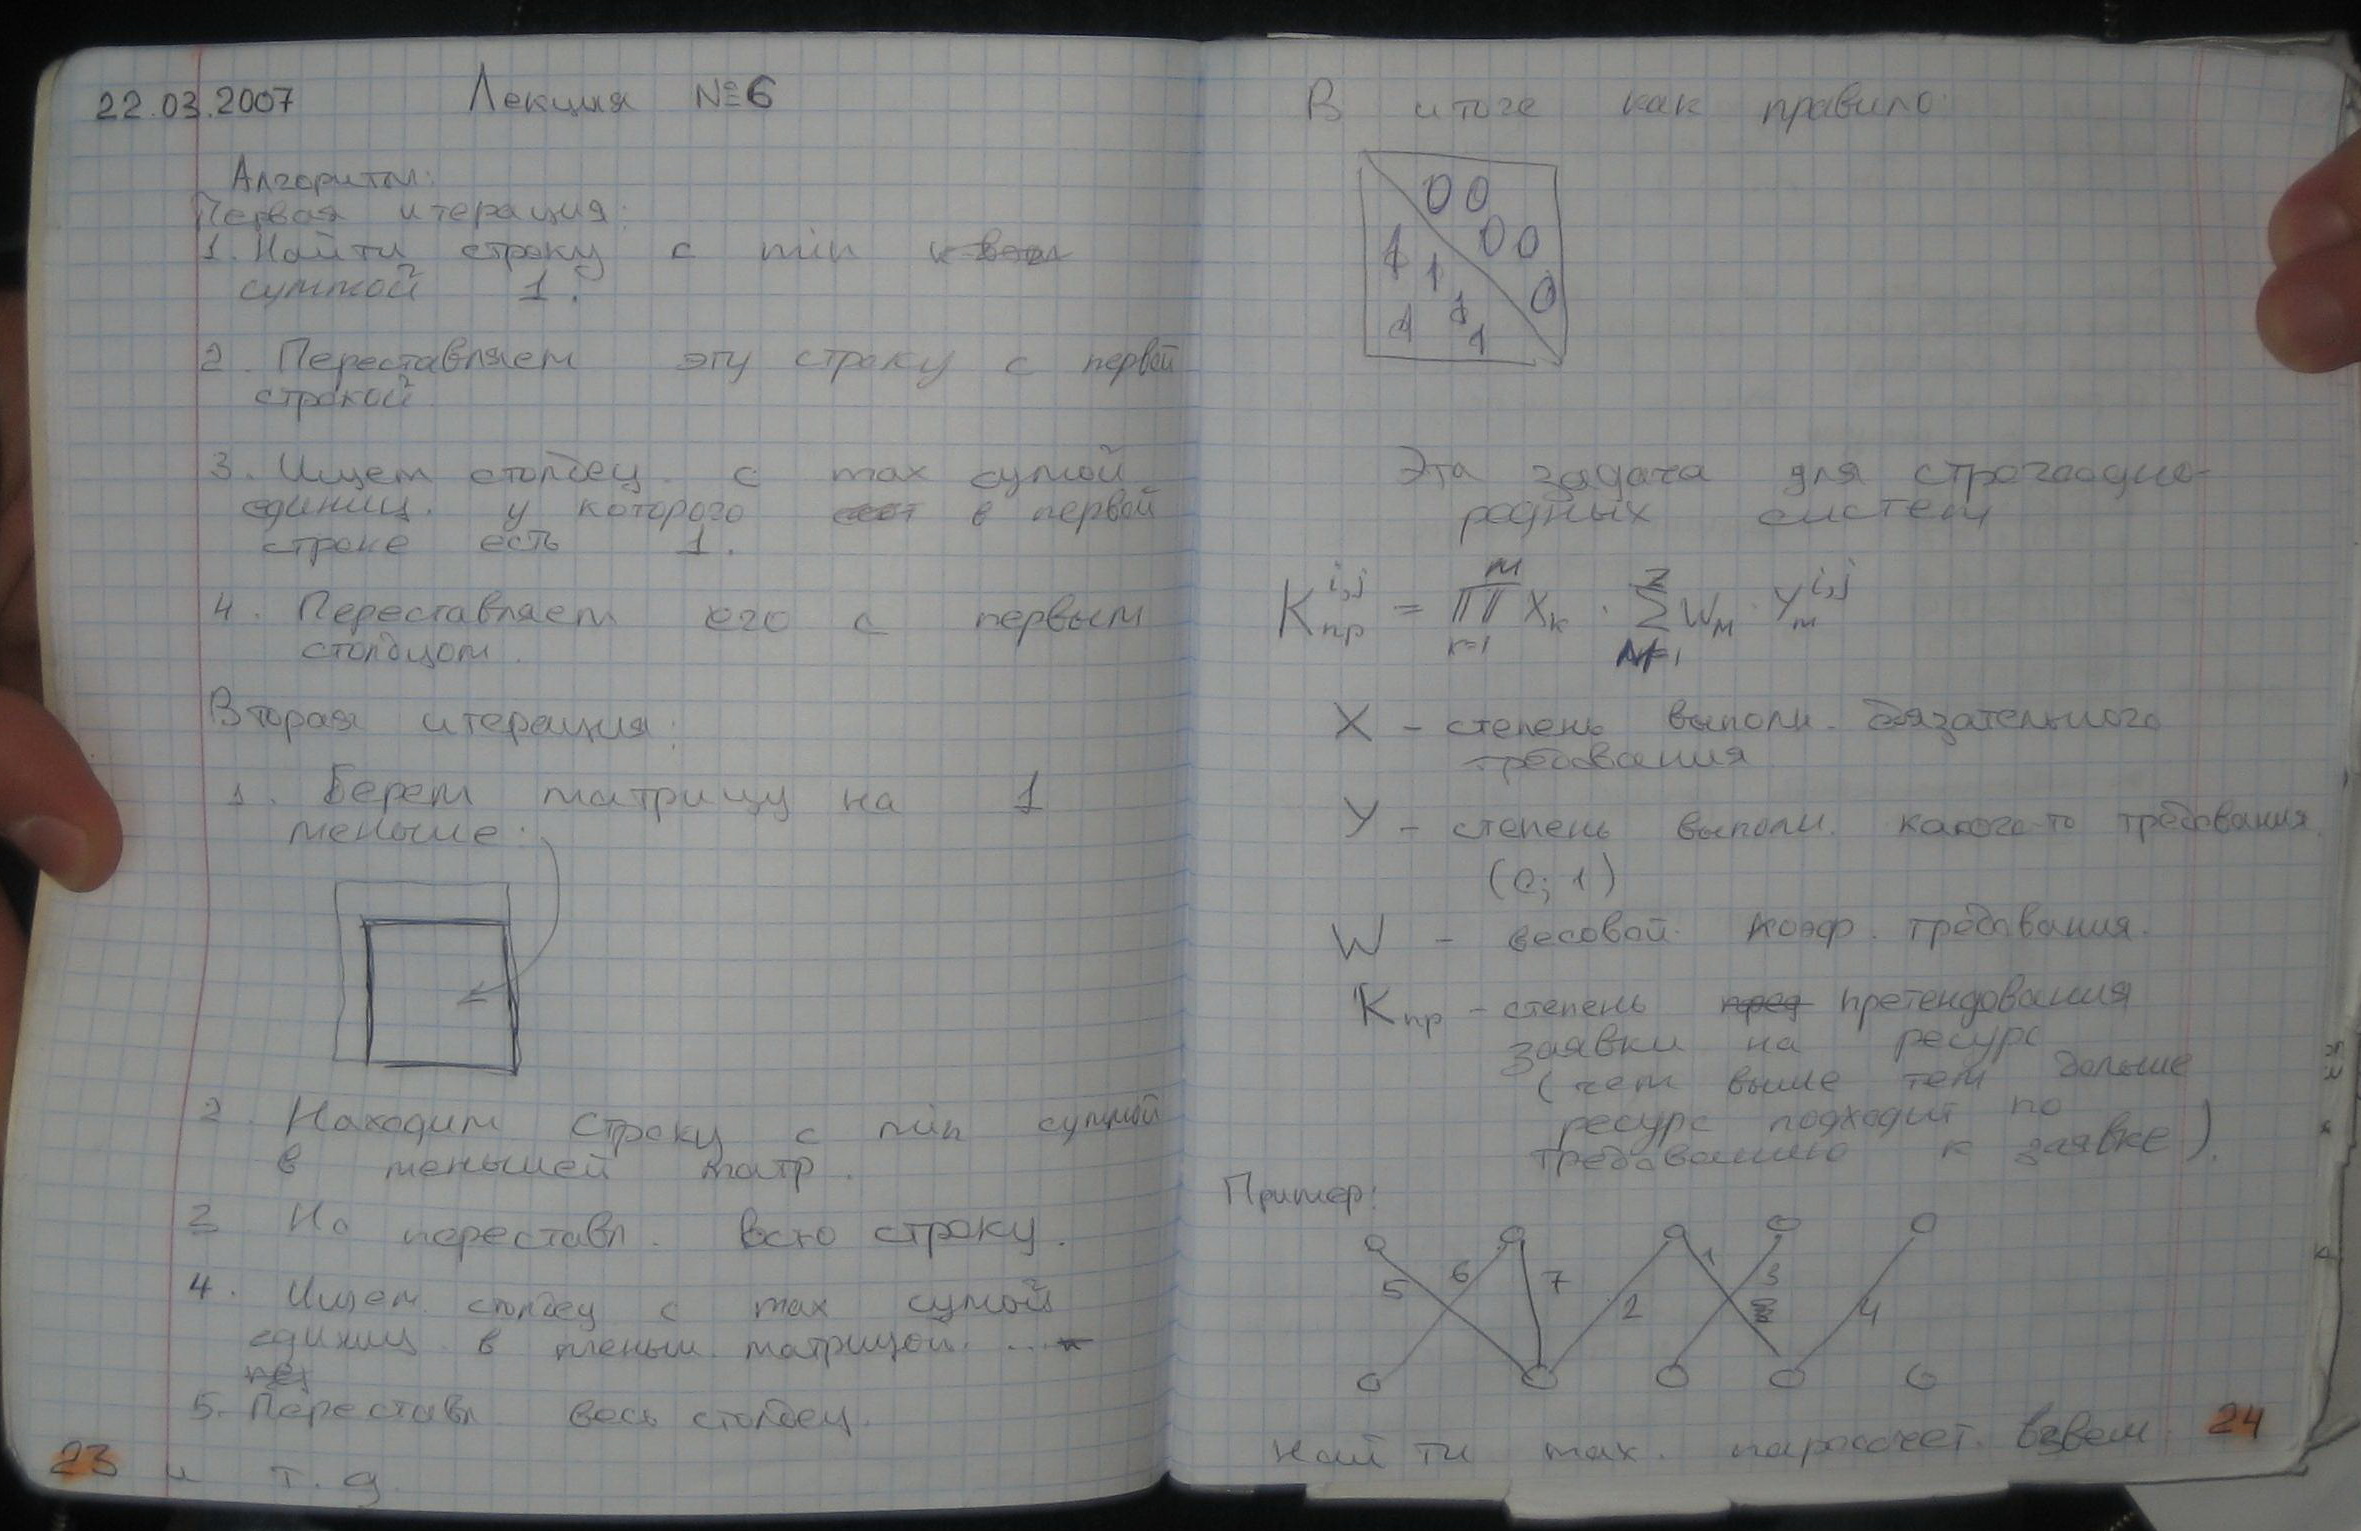 22.03.2007 Лекция №6
Алгоритм:
Первая итерация:
1. Найти строку с min
суммой 1.
2. Переставляем эту строку с первой
строкой
3. Ищем столбец с max сумой
единиц. у которого в первой
строке есть 1.
4. Переставляем его с первым
столбцом.
Вторая итерация:
1. Берем матрицу на 1
меньше:
2. Находим строку с min суммой
в меньшей матр.
3 Но переставл. всю строку.
4. Ищем столбец с max сумой
единиц в меньш. матрицой. ...
5. Переставл весь столбец.
и т. д.
23
В итоге как правило:
0 0
1 0 0
1 0
1 1 1
Эта задача для строгоодно-
родных систем
K пр i,j = ∏ M к=1 Xк · ∑ Z M=1 WM · Ym i,j
X - степень выполн. обязательного
требования
Y - степень выполн. какого-то требования
(0; 1)
W - весовой коэф. требования.
Kпр - степень претендования
заявки на ресурс
(чем выше тем больше
ресурс подходит по
требованию к заявке).
Пример:
5 6 7 2 1 3 4
Найти max. паросочет. взвеш.
24